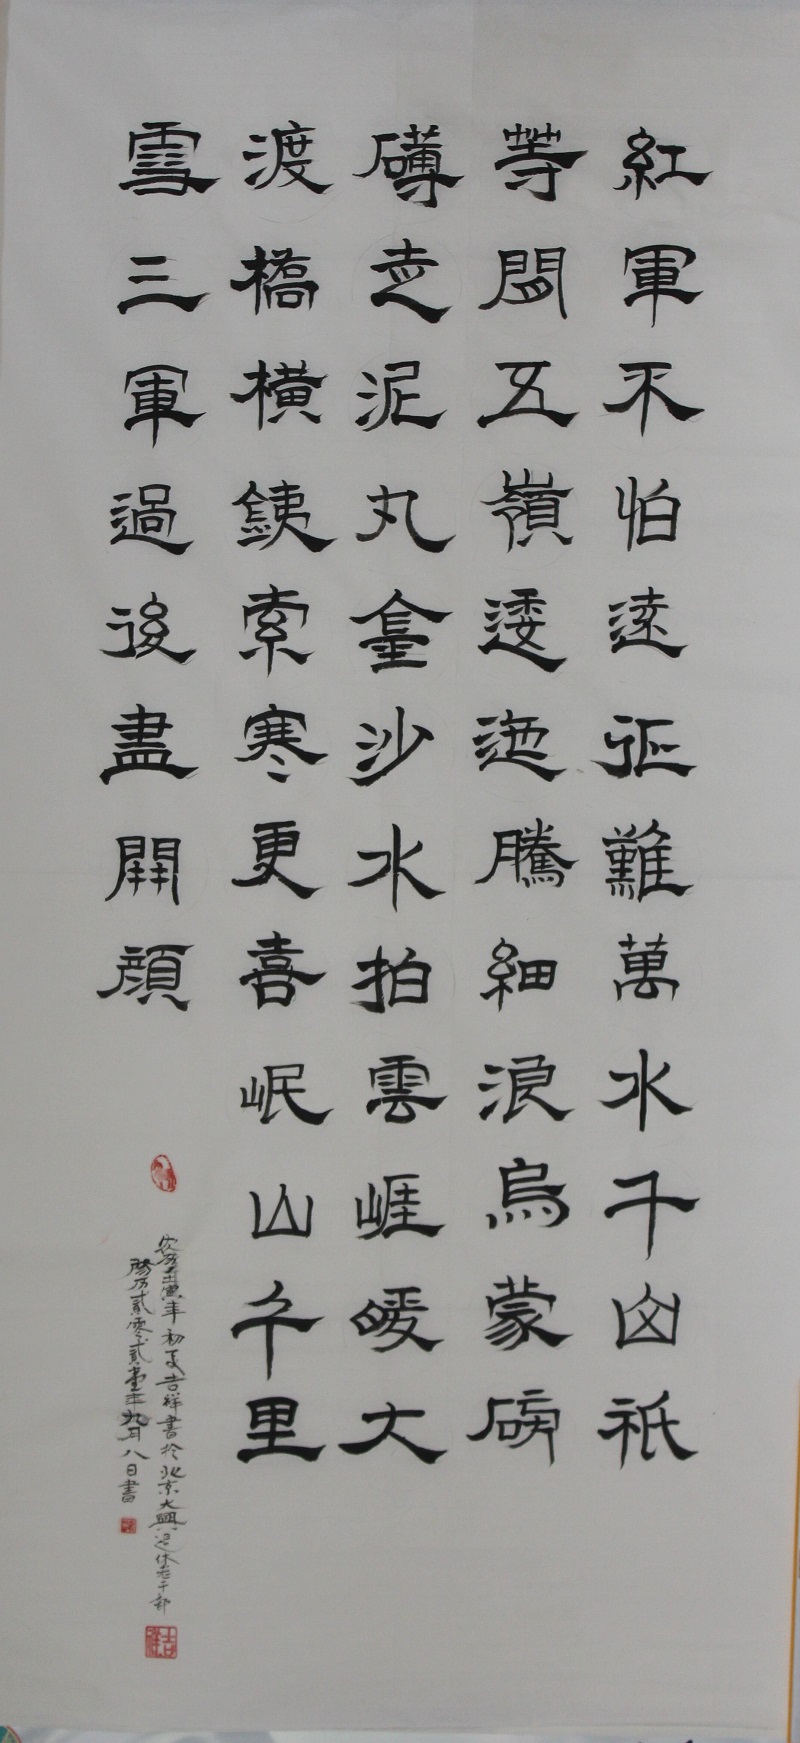 紅軍不怕遠征難萬水千山祇
等閒五嶺逶迤騰細浪烏蒙磅
礴走泥丸金沙水拍雲崕暖大
渡橋橫銕索寒更喜岷山千里
雪三軍過後盡開顏
农历壬寅年初夏吉祥書於北京大興退休老干部
陽历貳零貳壹年九月八日書